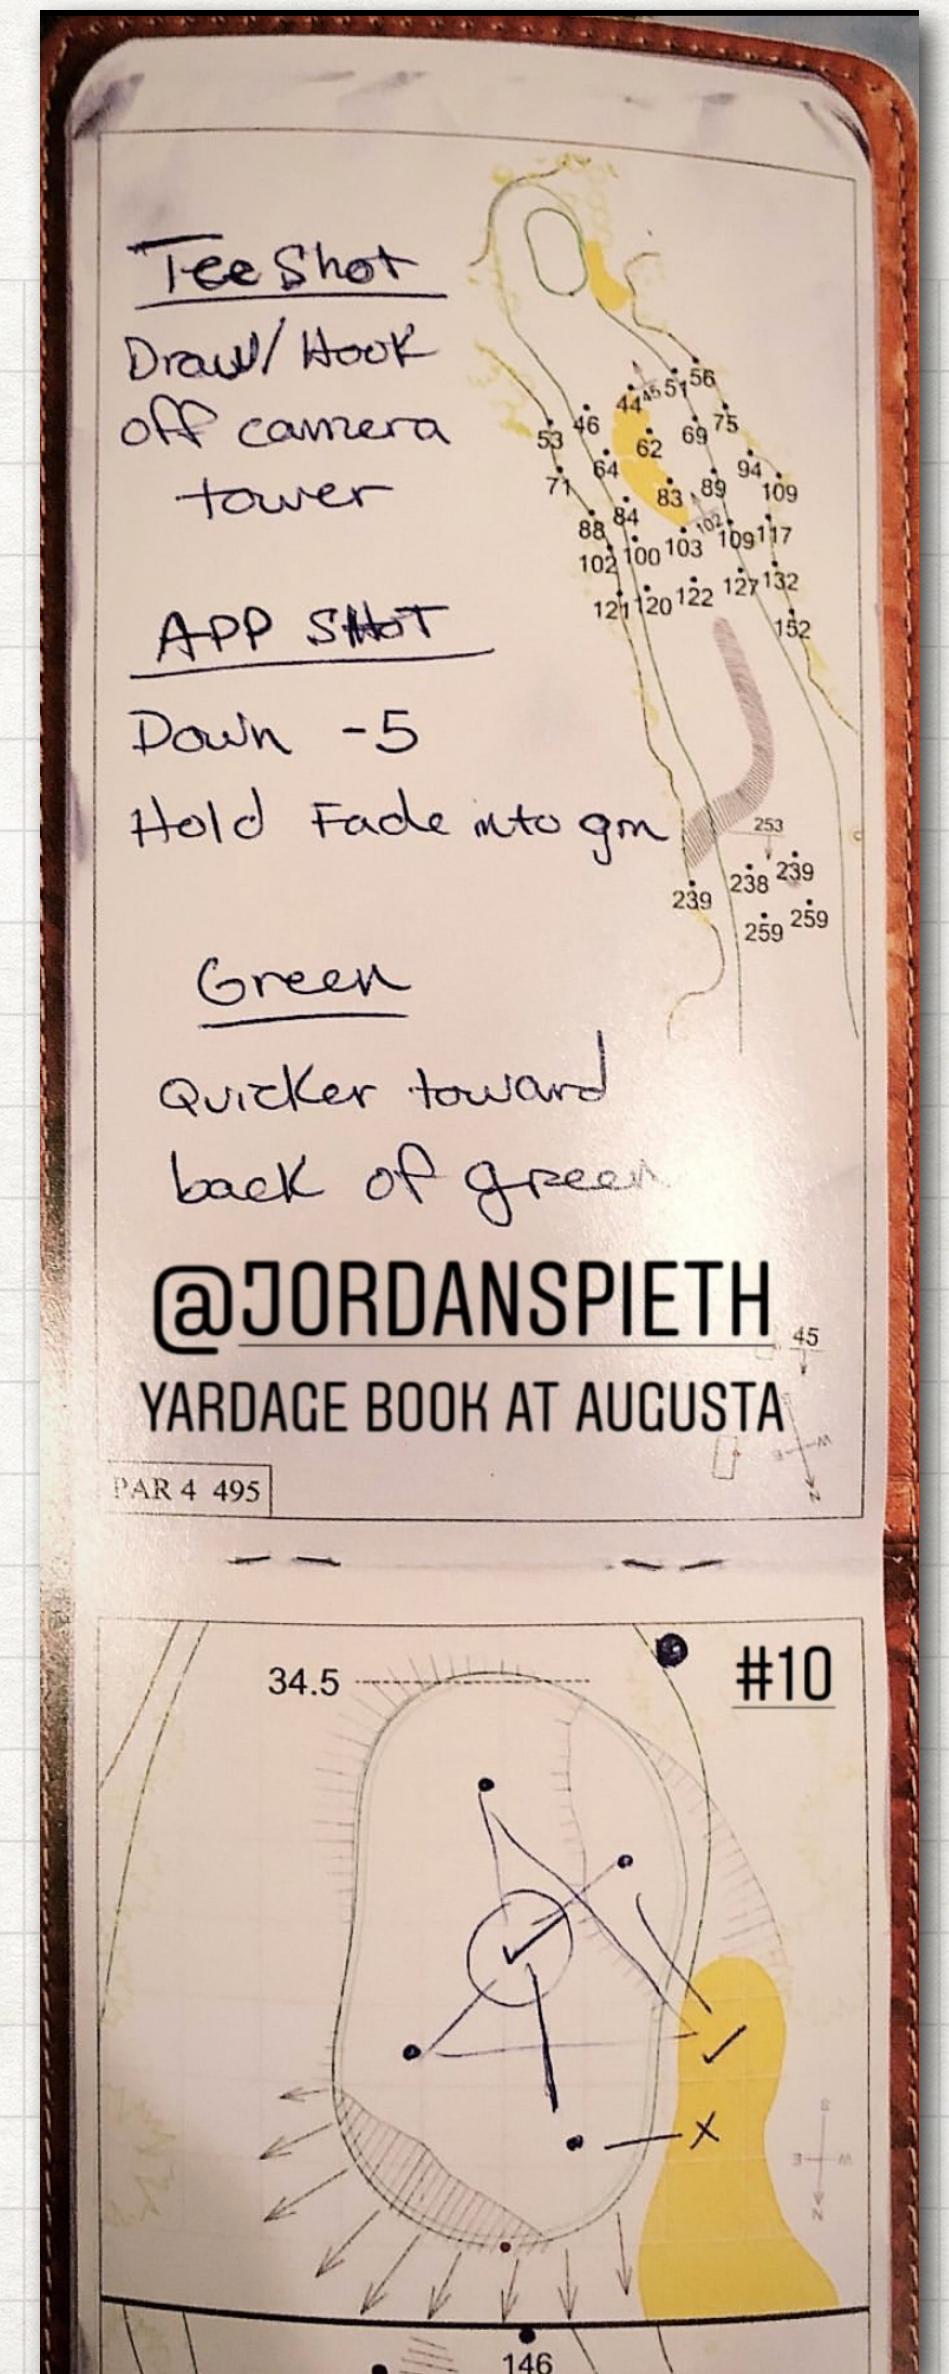 Tee Shot
Draw/Hook
off camera
tower
APP SHOT
Down -5
Hold Fade into grn
Green
Quicker toward
back of green
44 45 51 56
53 46 62 69 75
71 64 83 89 94 109
88 84 102
102 100 103 109 117
121 120 122 127 132
152
253
239 238 239
259 259
@JORDANSPIETH
45
YARDAGE BOOK AT AUGUSTA
E W
N
PAR 4 495
#10
34.5
X
S
E W
N
146